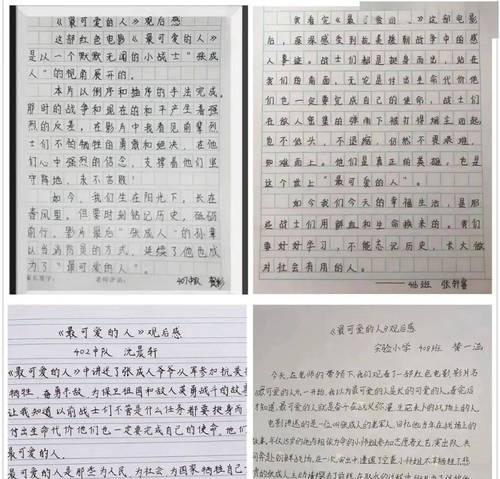 《最可爱的人》观后感
这部红色电影《最可爱的人》
是以一个默默无闻的小战士“张成
人”的视角展开的。
本片以倒序和插序的手法完成，
那时的战争和现在的和平产生着强
烈的反差，在影片中我看见前辈烈
士们不怕牺牲的勇敢和绝决，在他
们心中强烈的信念，支撑着他们坚
守阵地，永不言败！
如今，我们生在阳光下，长在
春风里。但要时刻铭记历史，砥砺
前行。影片最后“张成人”的孙辈
以当消防员的方式，延续了他也成
为了“最可爱的人”。
407中队
我看完《最可爱的人》这部电影
后，深深感受到抗美援朝战争中的感
人事迹。战士们都是挺身而出，站在
我们的前面，无论是付出生命代价他
们也一定要完成自己的使命，战士们
在敌人密集的弹雨下被打得
也不低头，不退缩，仍然不畏艰难，
知难而上。他们是真正的英雄，也是
这个世上“最可爱的人”。
如今我们今天的幸福生活，是那
些战士们用鲜血和生命换来的。我们
要好好学习，不能忘记历史，长大做
对社会有用的人。
——408班 张轩睿
《最可爱的人》观后感
402中队 沈晨轩
《最可爱的人》中讲述了张成人爷爷从军参加抗美
牺牲，奋勇不敌，为保卫祖国和敌人英勇战斗的故事
让我知道以前战士们不管是什么任务都要挺身而
付出生命代价他们也一定要完成自己的使命，他们
最可爱的人。
最可爱的人是那些为人民，为社会，为国家牺牲自己
《最可爱的人》观后感
实验小学 408班 黄一涵
今天，在老师的带领下，我们观看了一部红色电影，影片名
《最可爱的人》，一开始，我以为最可爱的人是长的可爱的人，看完后
才知道，最可爱的人就是奋不
电影讲述的是一位叫张成人的老军人，回忆他当年在战场上的